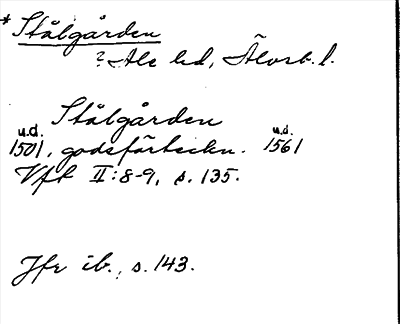 * Stålgården
? Ale hd, Älvsb. l.
Stålgården
u.d. u.d.
1501, godsförteckn. 1561
Vfk II:8-9, s. 135.
Jfr ib., s. 143.